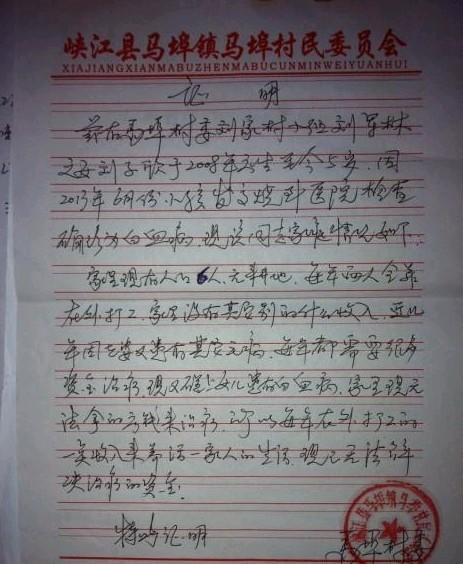 峡江县马埠镇马埠村民委员会
XIAJIANGXIANMABUZHENMABUCUNMINWEIYUANHUI
证 明
兹有马埠村委刘家村小组刘
之女刘子歆于2008年出生至今5岁.因
2013年6月份小孩发高烧到医院检查
确诊为白血病.现该同志家庭情况如下:
家里现有人口6人.无耕地.每年两人全靠
在外打工.家里没有其它别的什么收入.
年因患又患有其它病.每年都需要很多
资金治病.现又碰上女儿患有白血病.家里现无
法拿的方钱来治病.所以每年在外打工的
一点收入来养活一家人的生活.现已无法解
决治病的资金.
特此证明
马埠村委